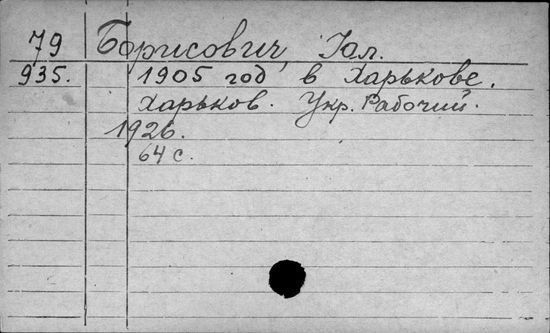 79 Борисович, Юл.
935. 1905 год в Харькове.
Харьков. Укр. Рабочий.
1926.
64 с.